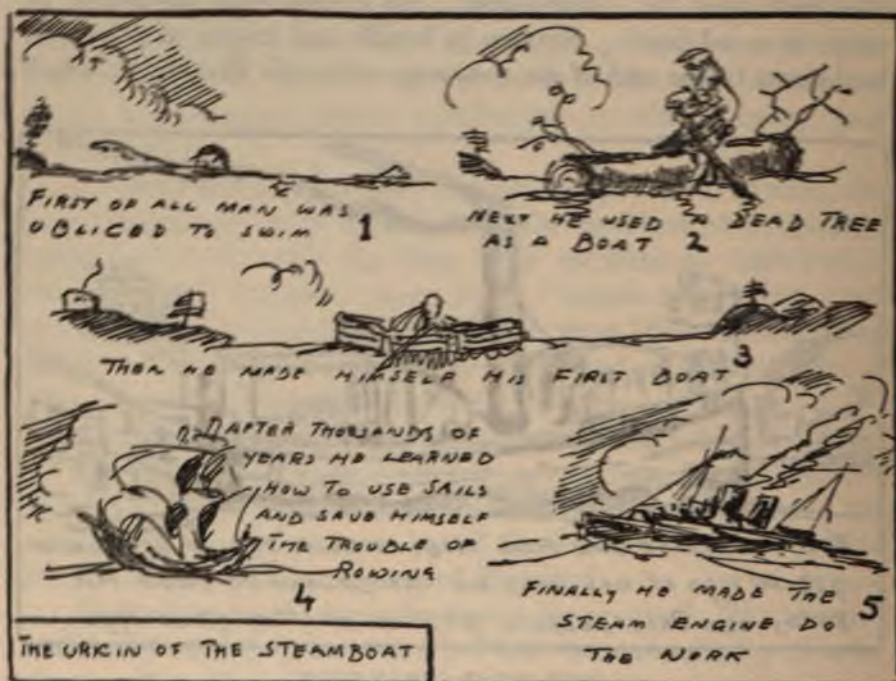 FIRST OF ALL MAN WAS
OBLIGED TO SWIM 1
NEXT HE USED A DEAD TREE
AS A BOAT 2
THEN HE MADE HIMSELF HIS FIRST BOAT 3
AFTER THOUSANDS OF
YEARS HE LEARNED
HOW TO USE SAILS
AND SAVE HIMSELF
THE TROUBLE OF
ROWING
4
FINALLY HE MADE THE
STEAM ENGINE DO 5
THE WORK
THE ORIGIN OF THE STEAMBOAT